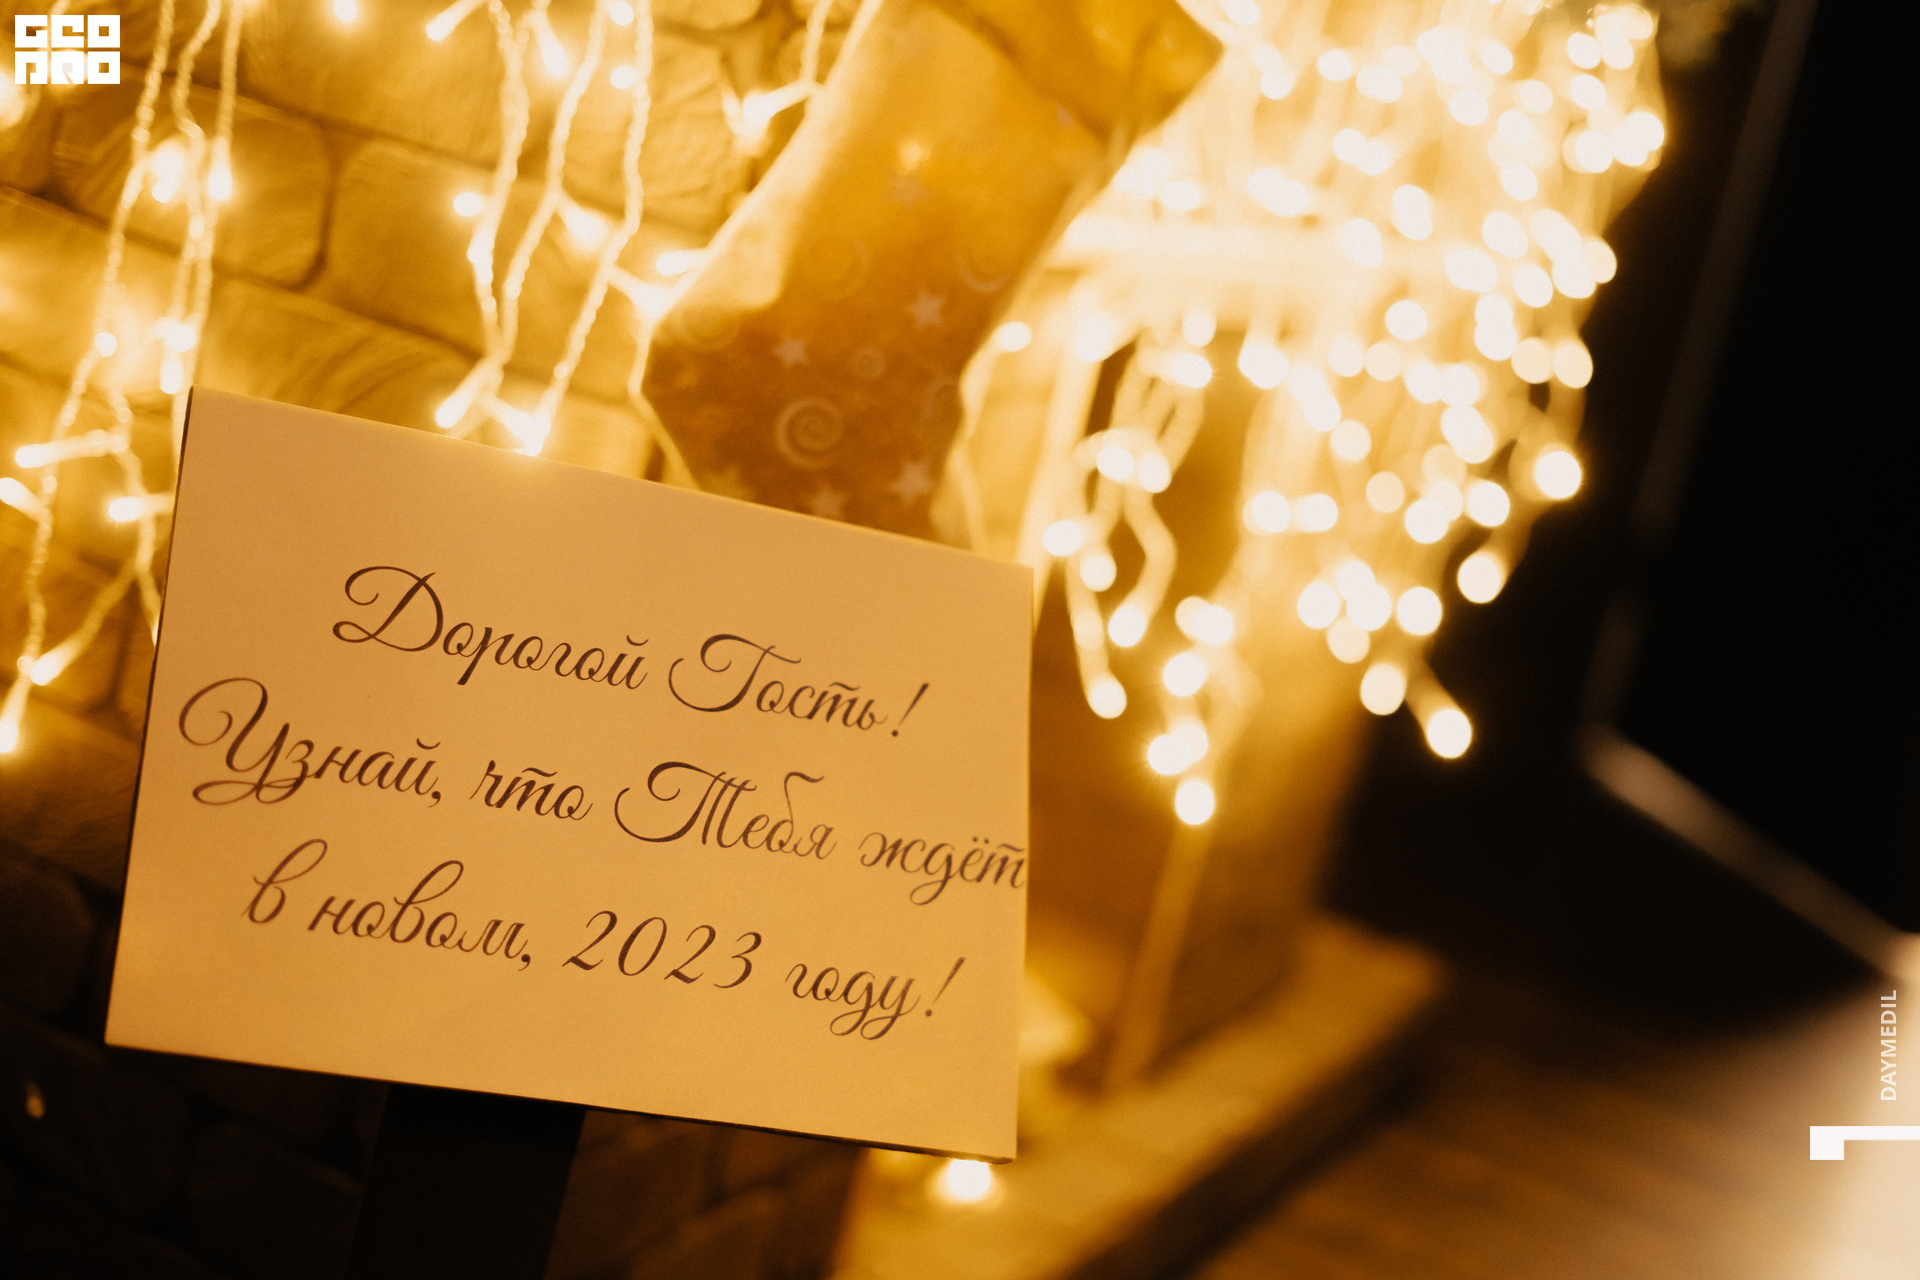 GEO
PRO
Дорогой Гость!
Узнай, что Тебя ждёт
в новом, 2023 году!
DAYMEDIL